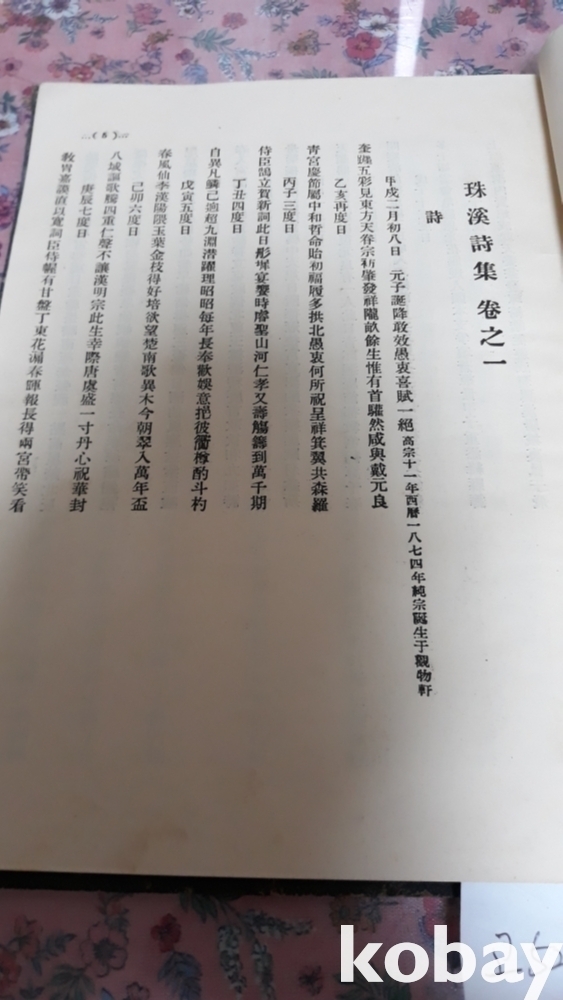 珠溪詩集 卷之一
詩
年戌二月初八日 元子誕降敢效愚衷喜賦一絕 高宗十一年西曆一八七四年純宗誕生于觀物軒
奎躔五彩見東方天眷宗祊肇發祥隴畝餘生惟有首驩然咸與戴元良
乙亥再度日
靑宮慶節屬中和哲命貽初福履多拱北愚衷何所祝呈祥箕翼共森羅
丙子三度日
侍臣鵠立賀新詞此日彤墀宴饗時膺聖山河仁孝又壽觴籌到萬千期
丁丑四度日
自異凡鱗己迥超九淵潛躍理昭昭每年長奉歡娛意挹彼衢樽酌斗杓
戊寅五度日
春風仙李漢陽隈玉葉金枝得好培欲望楚南歌異木今朝翠入萬年盃
己卯六度日
八域謳歌騰四重仁聲不讓漢明宗此生幸際唐虞盛一寸丹心祝華封
庚辰七度日
敎冑嘉謨直以寬詞臣侍幄有甘盤丁東花漏春暉報長得兩宮帶笑看
(5)
kobay